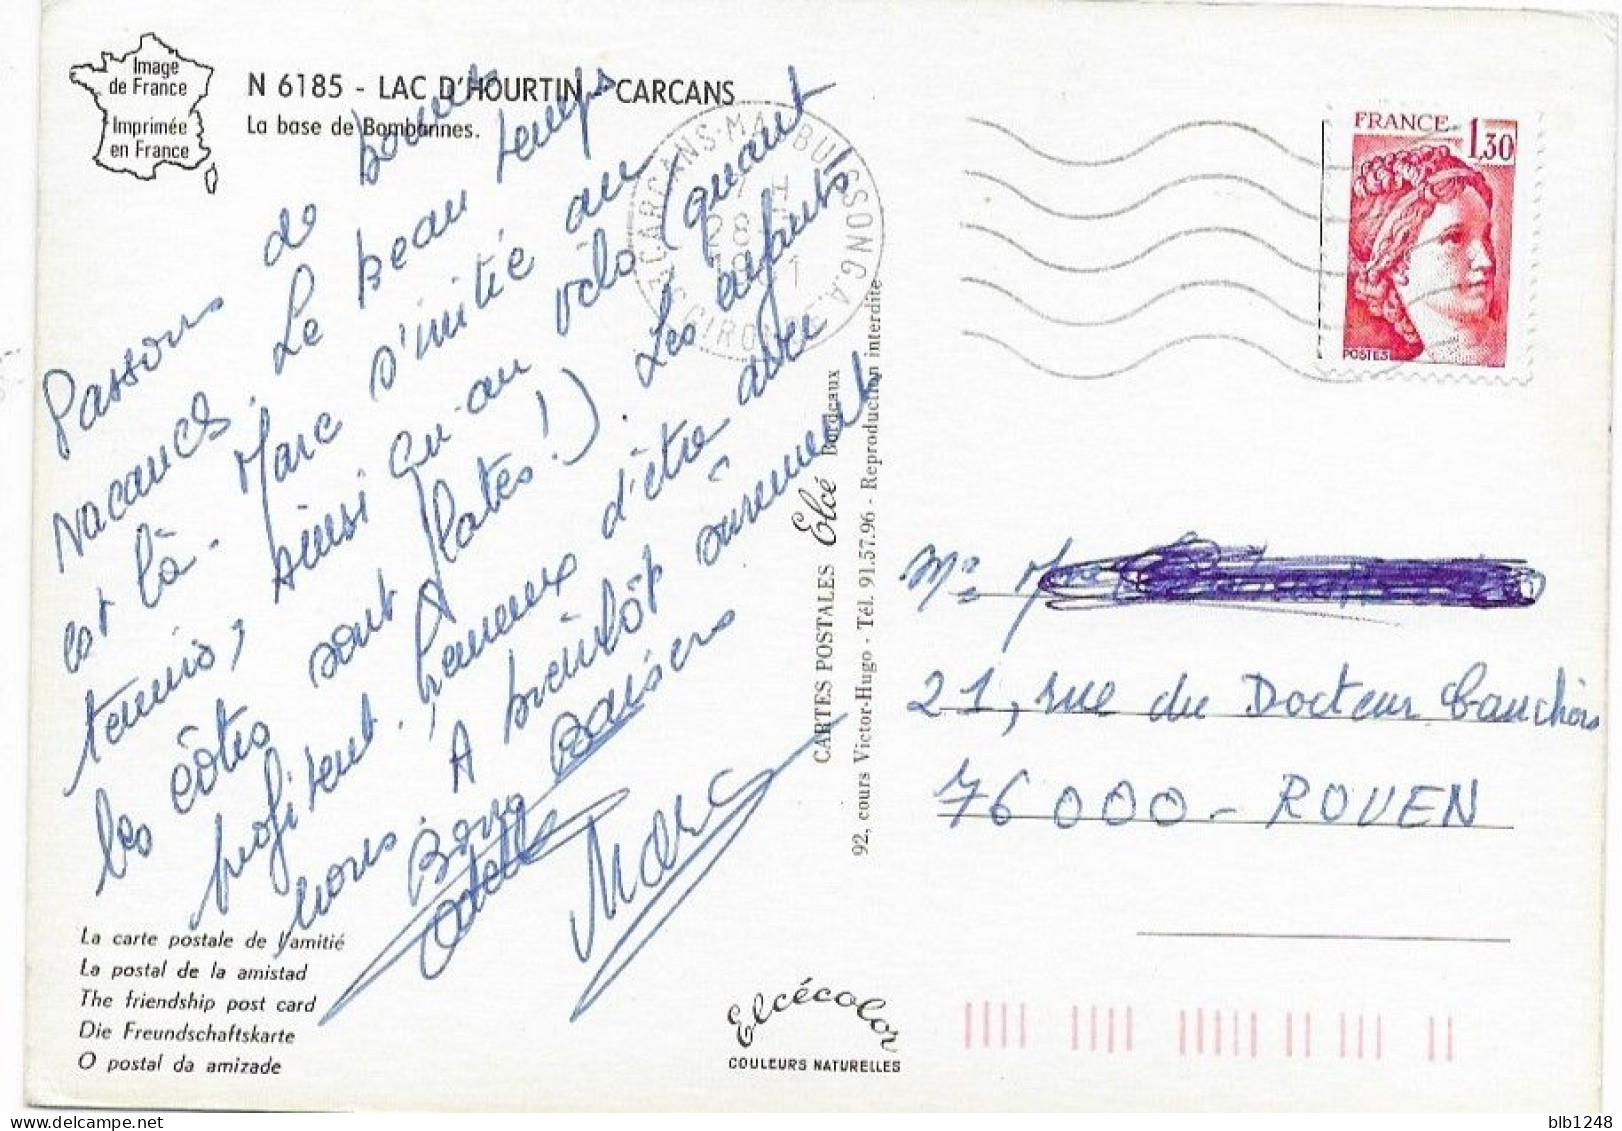 Image
de France
Imprimée
en France
N 6185 - LAC D'HOURTIN - CARCANS
La base de Bombannes.
Passons de bonnes
vacances. Le beau temps
est là. Marc s'initie au
tennis, ainsi qu'au vélo (quant
les côtes sont plates !). Les enfants
profitent, heureux d'être avec
nous. A bientôt sûrement
Bons Baisers
Odette
Marc
La carte postale de l'amitié
La postal de la amistad
The friendship post card
Die Freundschaftskarte
O postal da amizade
Elcécolor
COULEURS NATURELLES
CARTES POSTALES Elcé Bordeaux
92, cours Victor-Hugo - Tél. 91.57.96 - Reproduction interdite
CARCANS-MAUBUISSON C.A.
GIRONDE
FRANCE 1,30
POSTES
21, rue du Docteur Cauchois
76000 - ROUEN
blb1248